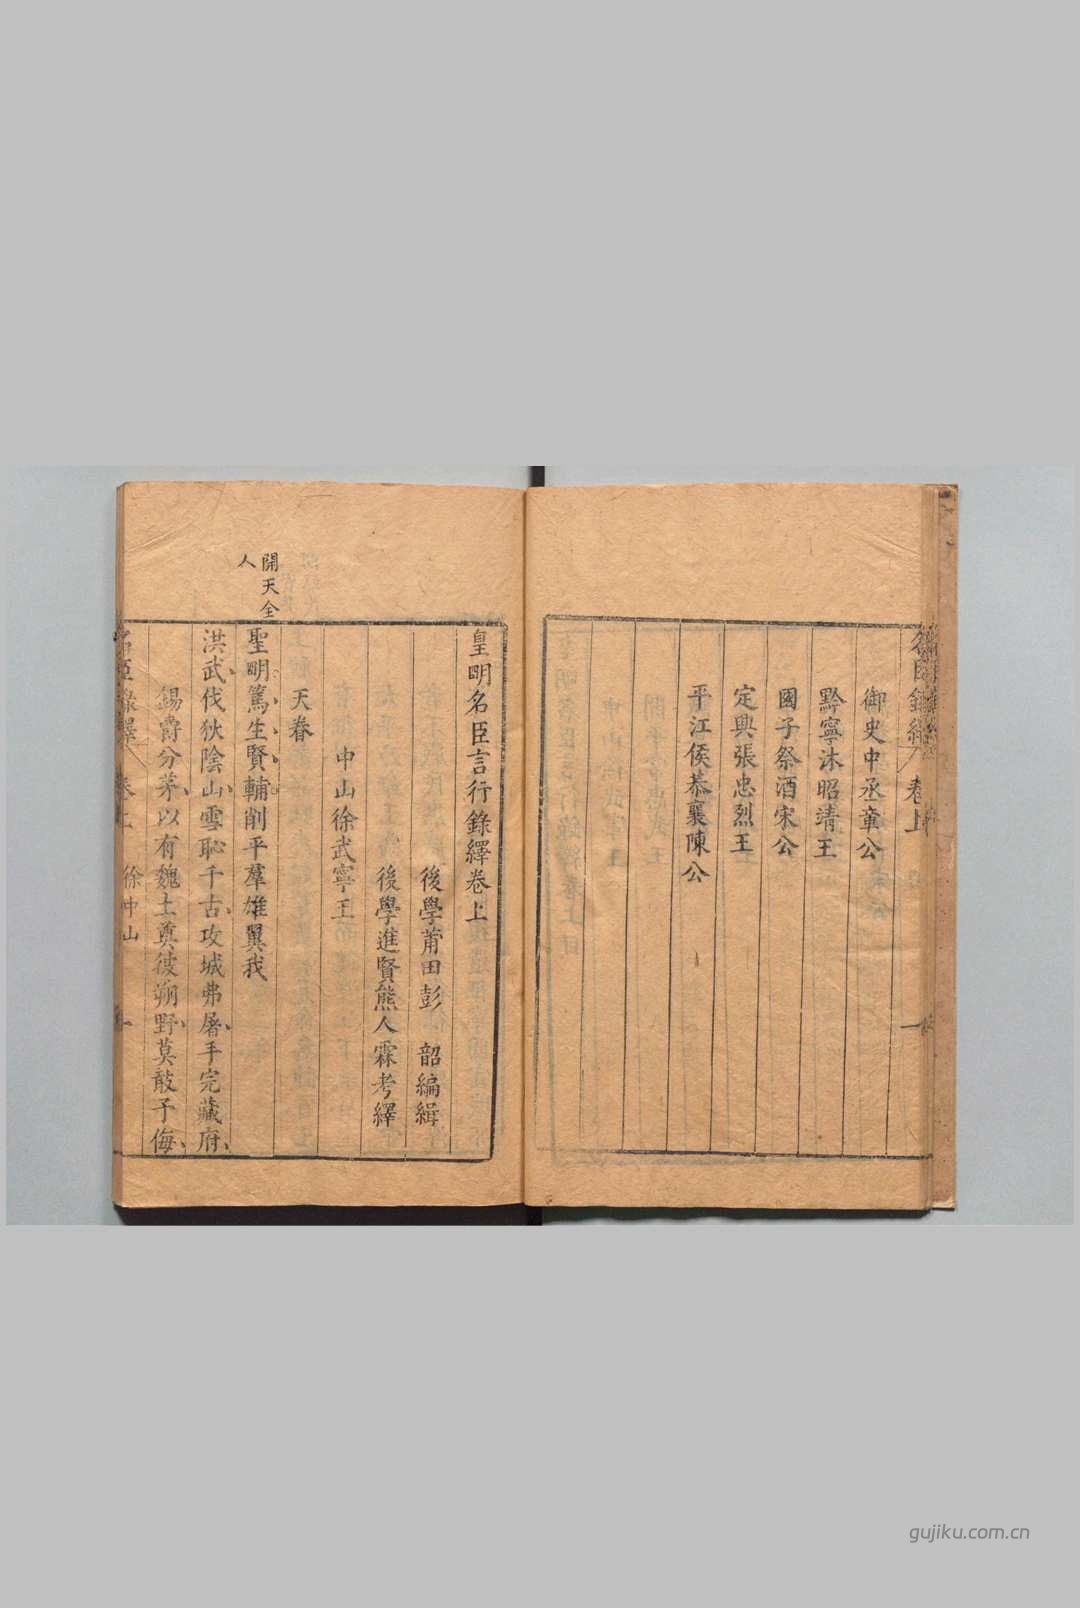 名臣錄繹 卷上 一
御史中丞章公
黔寧沐昭靖王
國子祭酒宋公
定興張忠烈王
平江侯恭襄陳公
皇明名臣言行錄繹卷上
後學莆田彭 韶編緝
後學進賢熊人霖考繹
中山徐武寧王
天眷
開天全人
聖明篤生賢輔削平羣雄翼我
洪武伐狄陰山雪恥千古攻城弗屠手完藏府
錫爵分茅以有魏土奠彼朔野莫敢予侮
名臣錄繹 卷上 徐中山 一
gujiku.com.cn